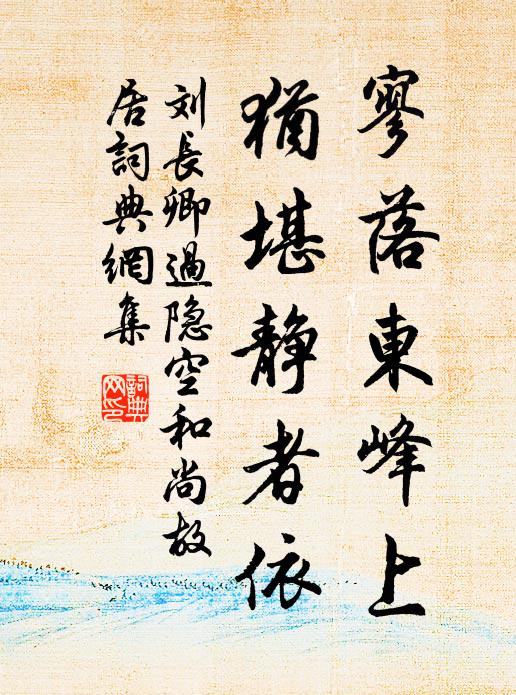 寥落東峰上
猶堪静者依
刘長卿過隐空和尚故
居詞典網集
詞典網印